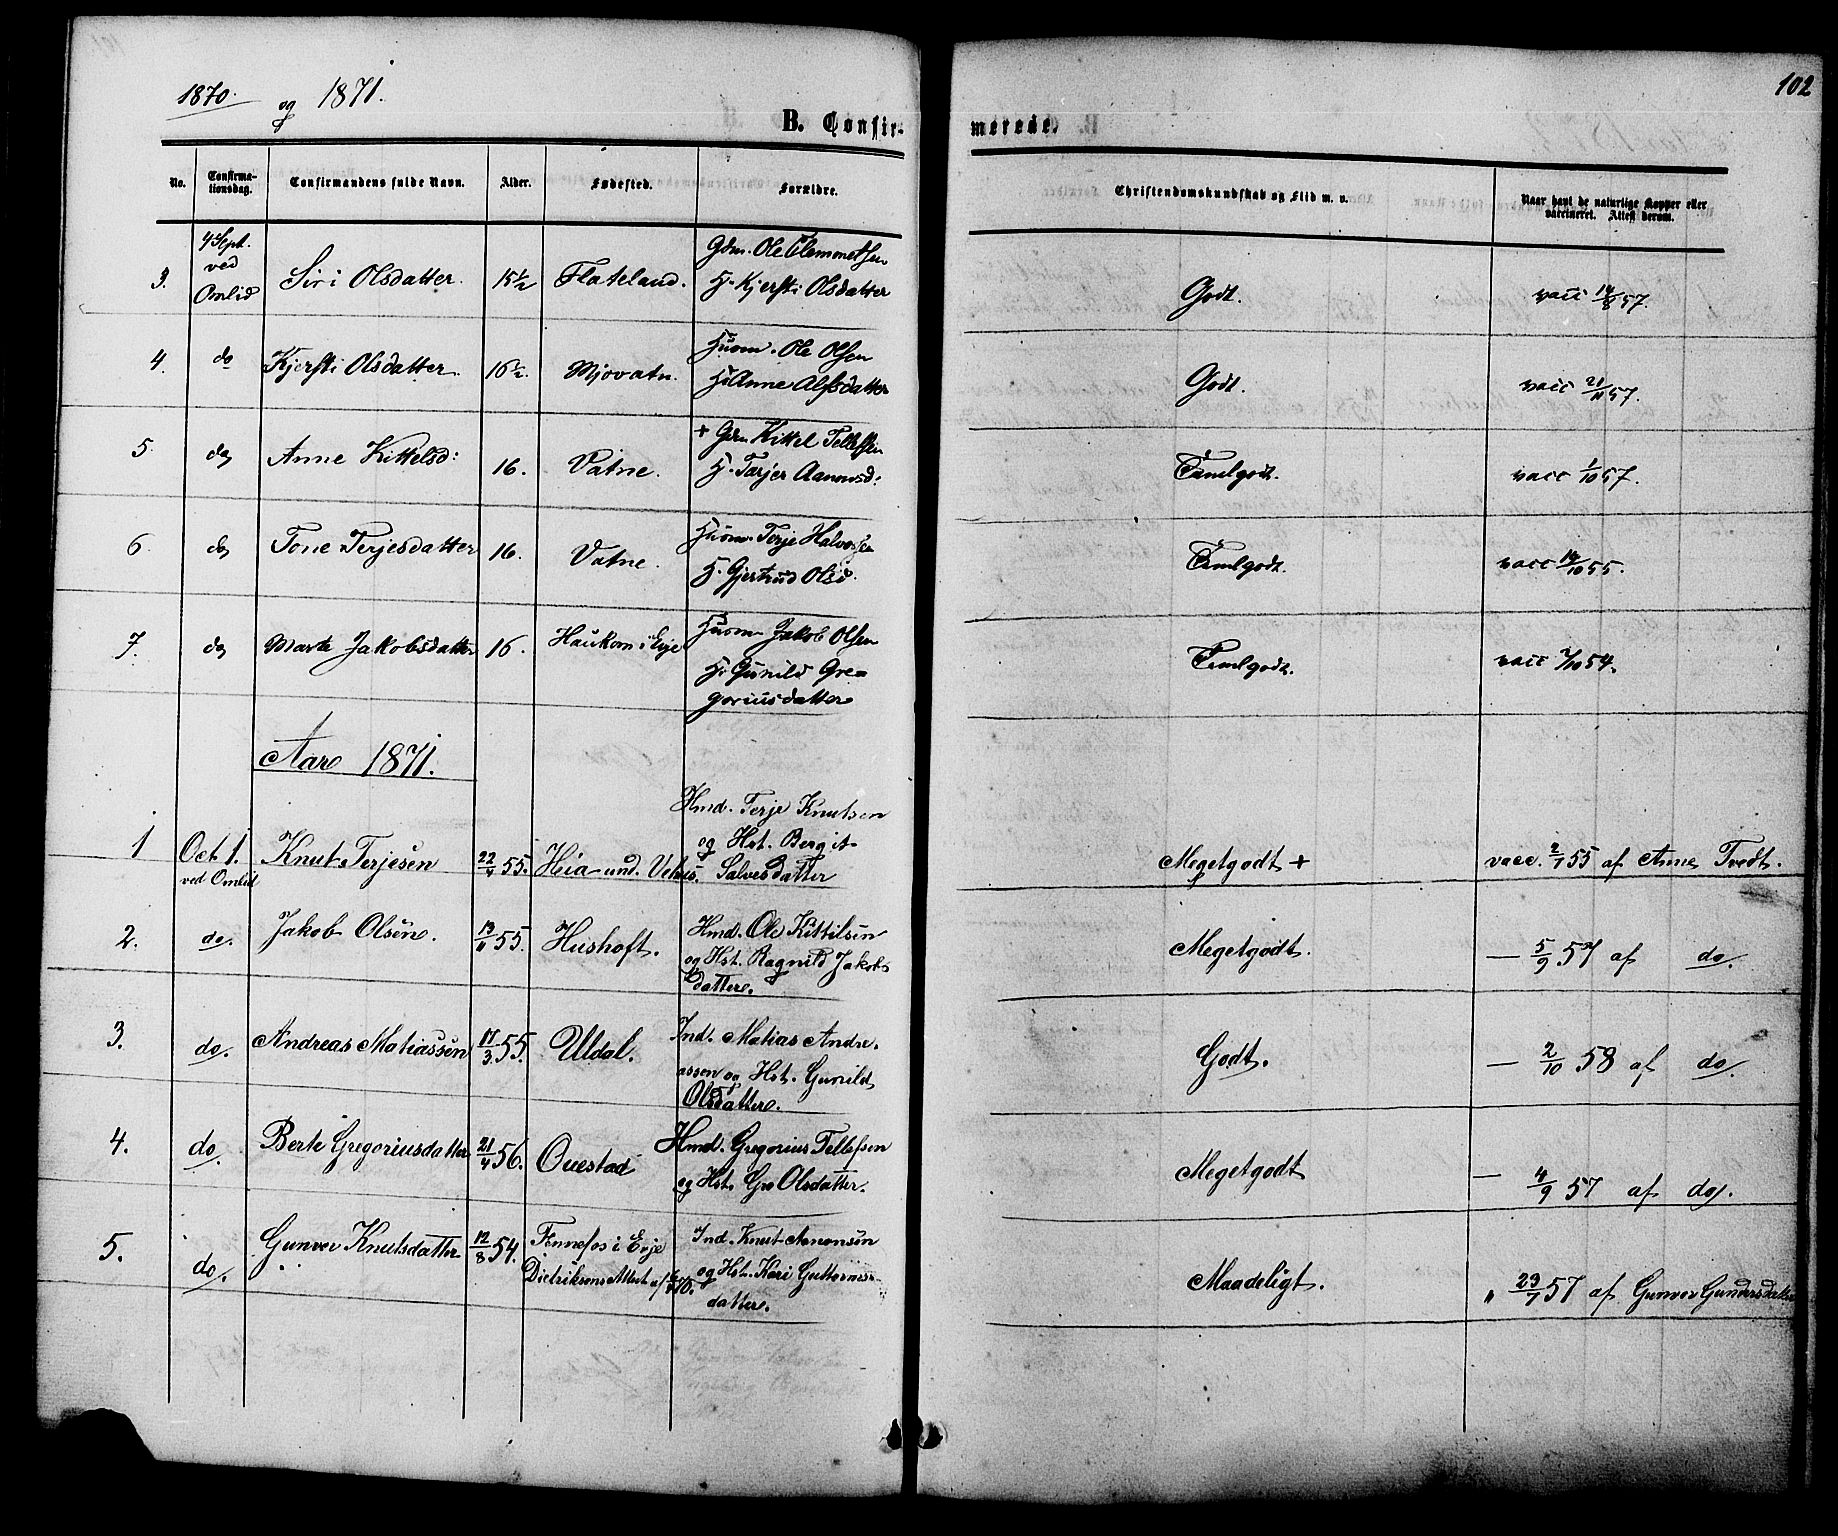 1870. og 1871.
102
B. Confirmerede.
No.
Confirmationsdag.
Confirmandens fulde Navn.
Alder.
Fødested.
Forældre.
Christendomskundskab og Flid m. v.
Naar havt de naturlige Kopper eller vaccineret. Attest derom.
3. 4 Sept. ved Omlid Siri Olsdatter. 15½ Flateland. Gdm. Ole Clemmetsen H. Kjersti Olsdatter Godt. vacc 14/8 57.
4. do Kjersti Olsdatter. 16½. Mjovatn. Husm. Ole Olsen H. Anne Alfsdatter Godt. vacc 21/11 57.
5. do Anne Kittelsd: 16. Vatne. + Gdm Kittel Tellefsen H. Tarjer Aanonsd: Temlgodt. vacc 1/10 57.
6. do Tone Terjesdatter 16. Vatne. Husm. Terje Halvorsen H. Gjertrud Olsd. Temlgodt. vacc 14/10 55.
7. do Marte Jakobsdatter 16. Haukom i Evje Husm Jakob Olsen H. Gunild Gregoriusdatter Temlgodt. vacc 7/10 54.
Aar 1871.
1 Oct 1. ved Omlid Knut Terjesen 22/4 55. Heia und. Vehus. Hmd. Terje Knutsen og Hst. Bergit Salvesdatter Megetgodt + vacc. 2/7 55 af Anne Tvedt.
2. do. Jakob Olsen. 13/11 55. Hushoft. Hmd. Ole Kittilsen og Hst. Ragnild Jakobsdatter. Megetgodt. — 5/9 57 af do.
3. do. Andreas Matiassen 17/3 55. Uldal. Ind. Matias Andreassen og Hst. Gunild Olsdatter. Godt. — 2/10 58 af do.
4. do. Berte Gregoriusdatter 21/4 56. Ouestad Hmd. Gregorius Tellefsen og Hst. Gro Olsdatter. Megetgodt — 4/9 57 af do.
5. do. Gunvor Knutsdatter 12/8 54. Fennefos i Evje Didriksens Attest af Ind. Knut Aanonsen og Hst. Kari Guttormsdatter. Maadeligt. " 23/7 57 af Gunvor Gundersdatter